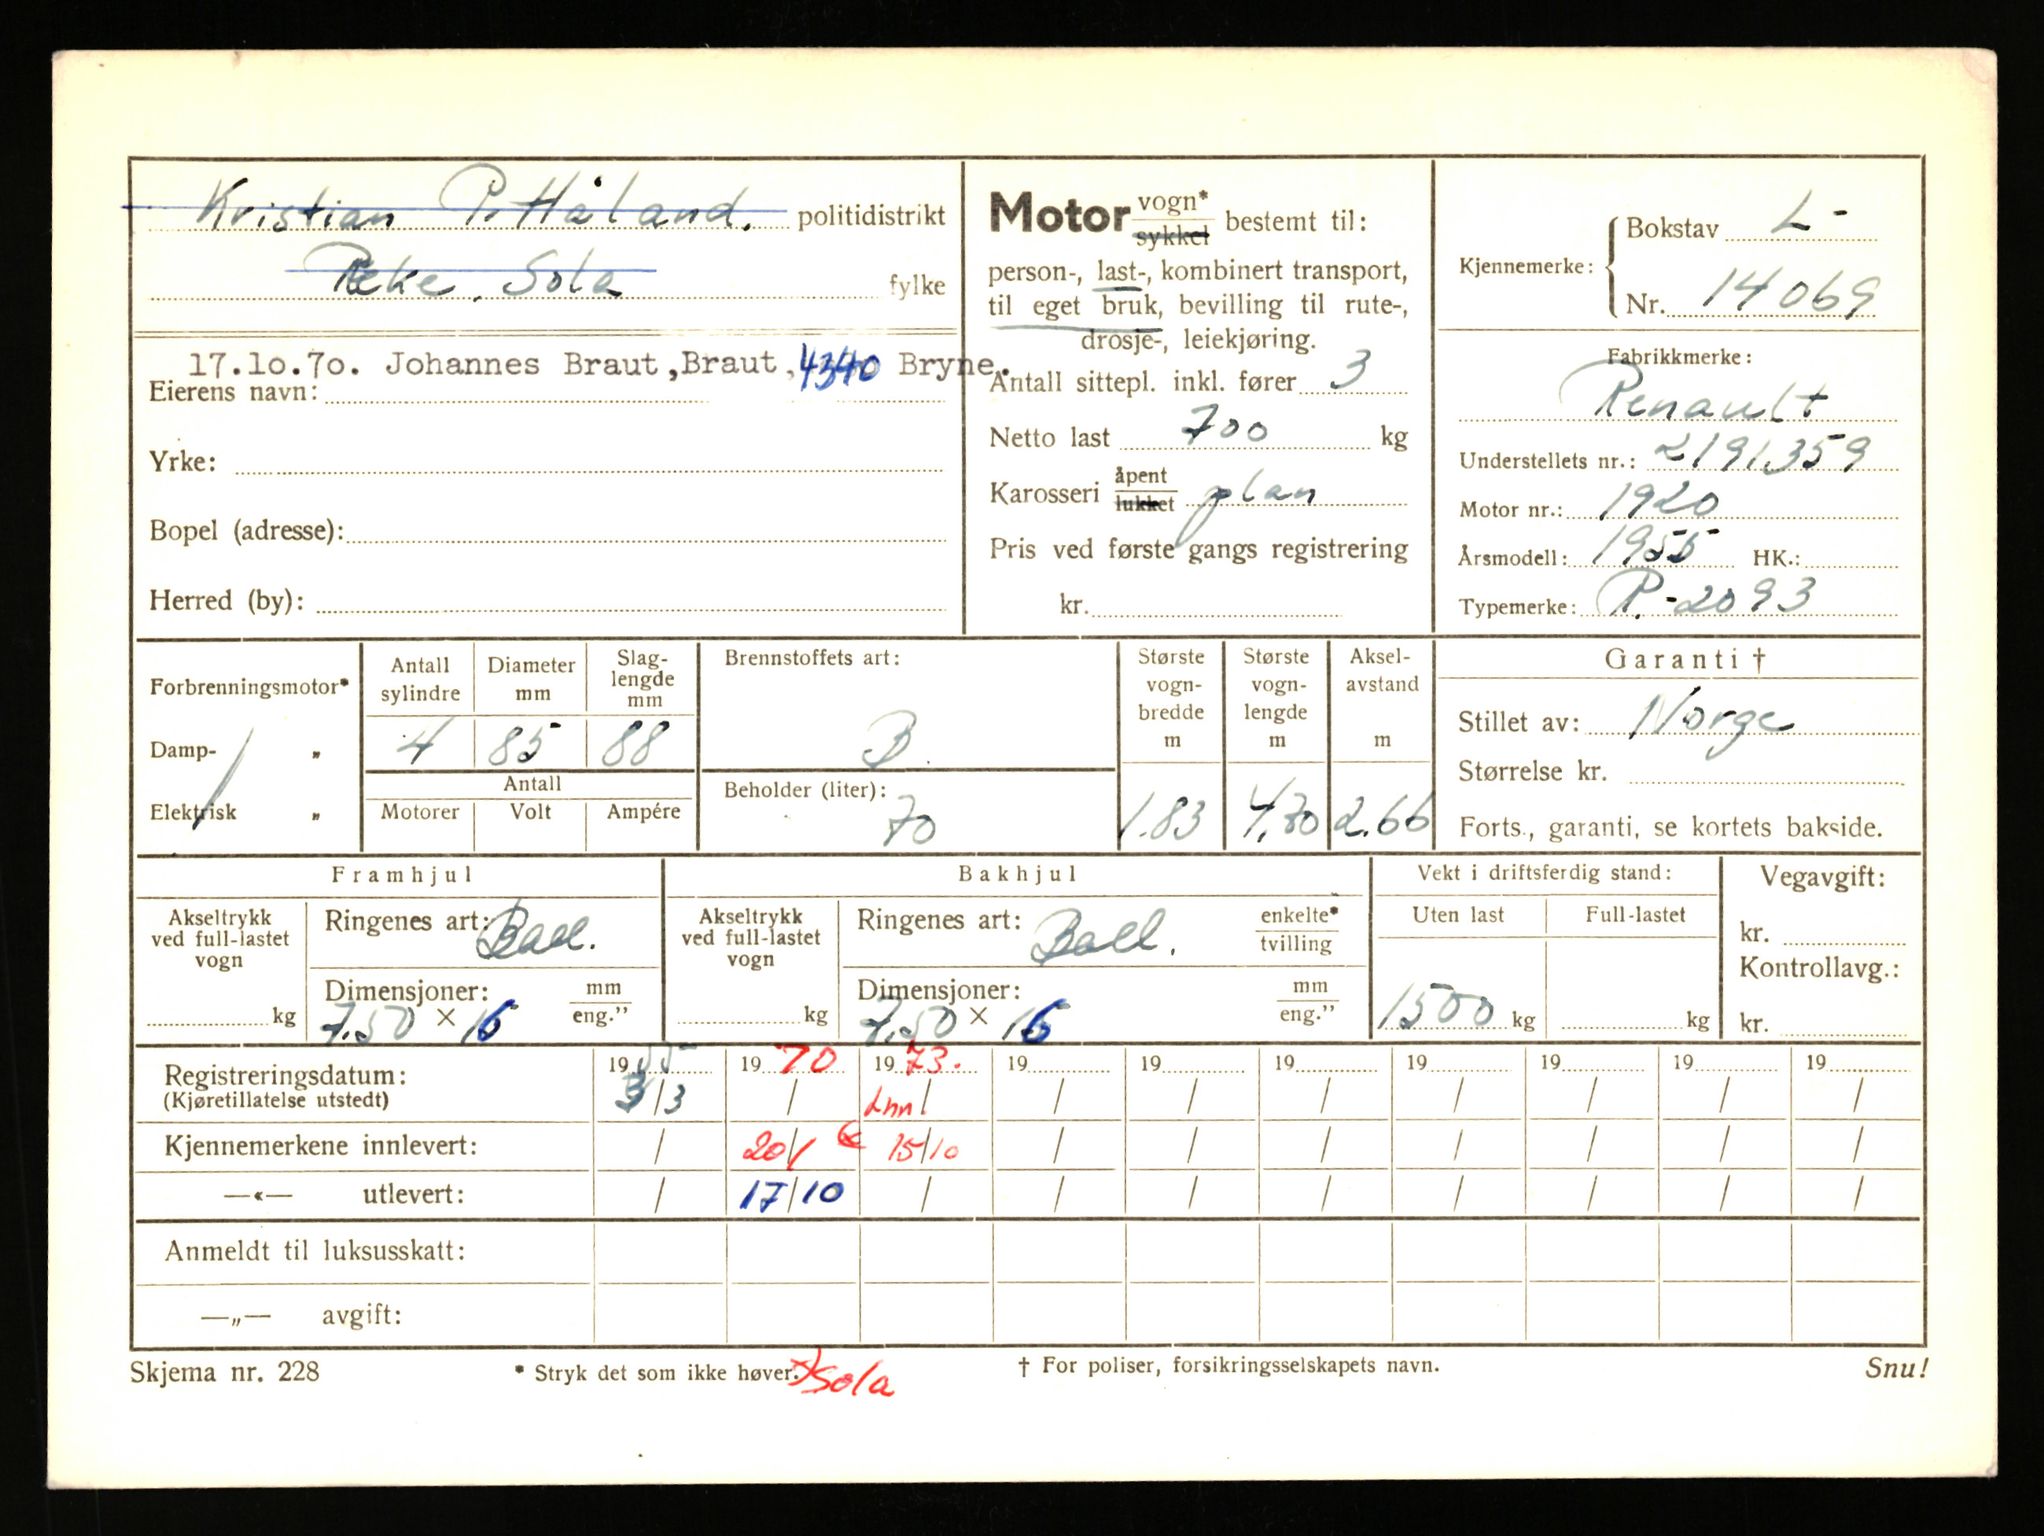 Kristian P. Håland. politidistrikt
Ræke, Sola fylke
17.10.70. Johannes Braut, Braut, 4340 Bryne.
Eierens navn:
Yrke:
Bopel (adresse):
Herred (by):
Motor vogn* sykkel bestemt til:
person-, last-, kombinert transport,
til eget bruk, bevilling til rute-,
drosje-, leiekjøring.
Antall sittepl. inkl. fører 3
Netto last 700 kg
Karosseri åpent lukket plan
Pris ved første gangs registrering
kr.
Kjennemerke: Bokstav L-
Nr. 14069
Fabrikkmerke:
Renault
Understellets nr.: 2191359
Motor nr.: 1920
Årsmodell: 1955 HK.:
Typemerke: R.-2093
Forbrenningsmotor*
Damp- „
Elektrisk „
Antall sylindre Diameter mm Slag-lengde mm
4 85 88
Antall
Motorer Volt Ampére
Brennstoffets art:
B
Beholder (liter):
70
Største vogn-bredde m
1.83
Største vogn-lengde m
4.70
Aksel-avstand m
2.66
Garanti †
Stillet av: Norge
Størrelse kr.
Forts., garanti, se kortets bakside.
Framhjul
Akseltrykk ved full-lastet vogn
kg
Ringenes art: Ball.
Dimensjoner: mm eng."
7.50 × 16
Bakhjul
Akseltrykk ved full-lastet vogn
kg
Ringenes art: Ball. enkelte* tvilling
Dimensjoner: mm eng."
7.50 × 16
Vekt i driftsferdig stand:
Uten last Full-lastet
1500 kg kg
Vegavgift:
kr.
Kontrollavg.:
kr.
Registreringsdatum: 1955 1970 1973. 19 19 19 19 19 19 19
(Kjøretillatelse utstedt) 3/3 / Inn / / / / / / / /
Kjennemerkene innlevert: / 20/ 15/10 / / / / / / /
—«— utlevert: / 17/10 / / / / / / / /
Anmeldt til luksusskatt:
—„— avgift:
Skjema nr. 228 * Stryk det som ikke høver. Sola † For poliser, forsikringsselskapets navn. Snu!